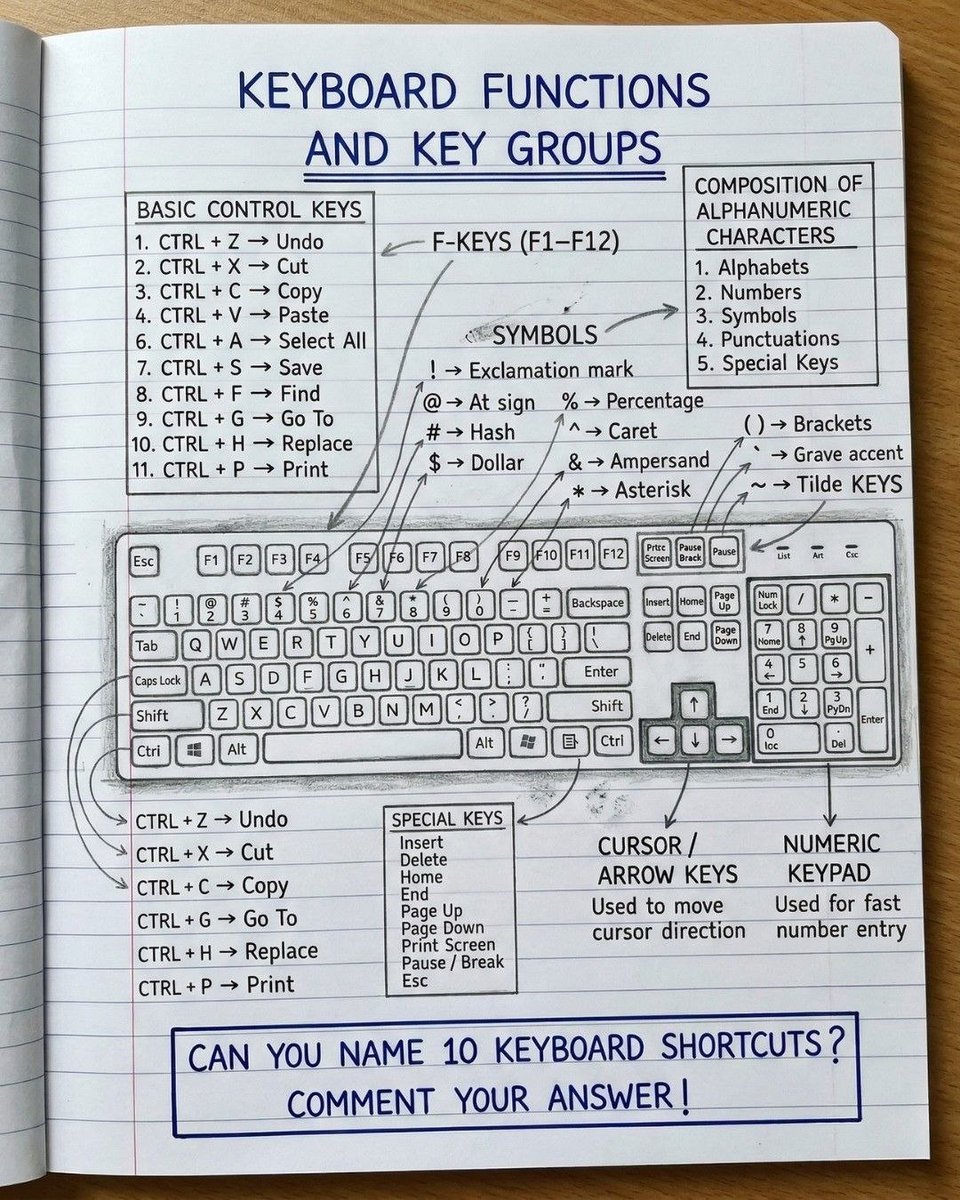 KEYBOARD FUNCTIONS
AND KEY GROUPS
BASIC CONTROL KEYS
1. CTRL + Z → Undo
2. CTRL + X → Cut
3. CTRL + C → Copy
4. CTRL + V → Paste
6. CTRL + A → Select All
7. CTRL + S → Save
8. CTRL + F → Find
9. CTRL + G → Go To
10. CTRL + H → Replace
11. CTRL + P → Print
F-KEYS (F1–F12)
COMPOSITION OF
ALPHANUMERIC
CHARACTERS
1. Alphabets
2. Numbers
3. Symbols
4. Punctuations
5. Special Keys
SYMBOLS
! → Exclamation mark
@ → At sign % → Percentage
# → Hash ^ → Caret
$ → Dollar & → Ampersand
* → Asterisk
( ) → Brackets
` → Grave accent
~ → Tilde KEYS
Esc F1 F2 F3 F4 F5 F6 F7 F8 F9 F10 F11 F12
Prtrc Screen Pause Brack Pause
List Art Csc
~ ` ! 1 @ 2 # 3 $ 4 % 5 ^ 6 & 7 * 8 ( 9 ) 0 _ - + = Backspace
Insert Home Page Up
Num Lock / * -
Tab Q W E R T Y U I O P { [ } ] | \
Delete End Page Down
7 Home 8 ↑ 9 PgUp +
Caps Lock A S D F G H J K L : ; " ' Enter
4 ← 5 6 →
Shift Z X C V B N M < , > . ? / Shift
↑
1 End 2 ↓ 3 PyDn Enter
Ctri Alt Alt Ctrl
← ↓ →
0 loc . Del
CTRL + Z → Undo
CTRL + X → Cut
CTRL + C → Copy
CTRL + G → Go To
CTRL + H → Replace
CTRL + P → Print
SPECIAL KEYS
Insert
Delete
Home
End
Page Up
Page Down
Print Screen
Pause / Break
Esc
CURSOR /
ARROW KEYS
Used to move
cursor direction
NUMERIC
KEYPAD
Used for fast
number entry
CAN YOU NAME 10 KEYBOARD SHORTCUTS?
COMMENT YOUR ANSWER!